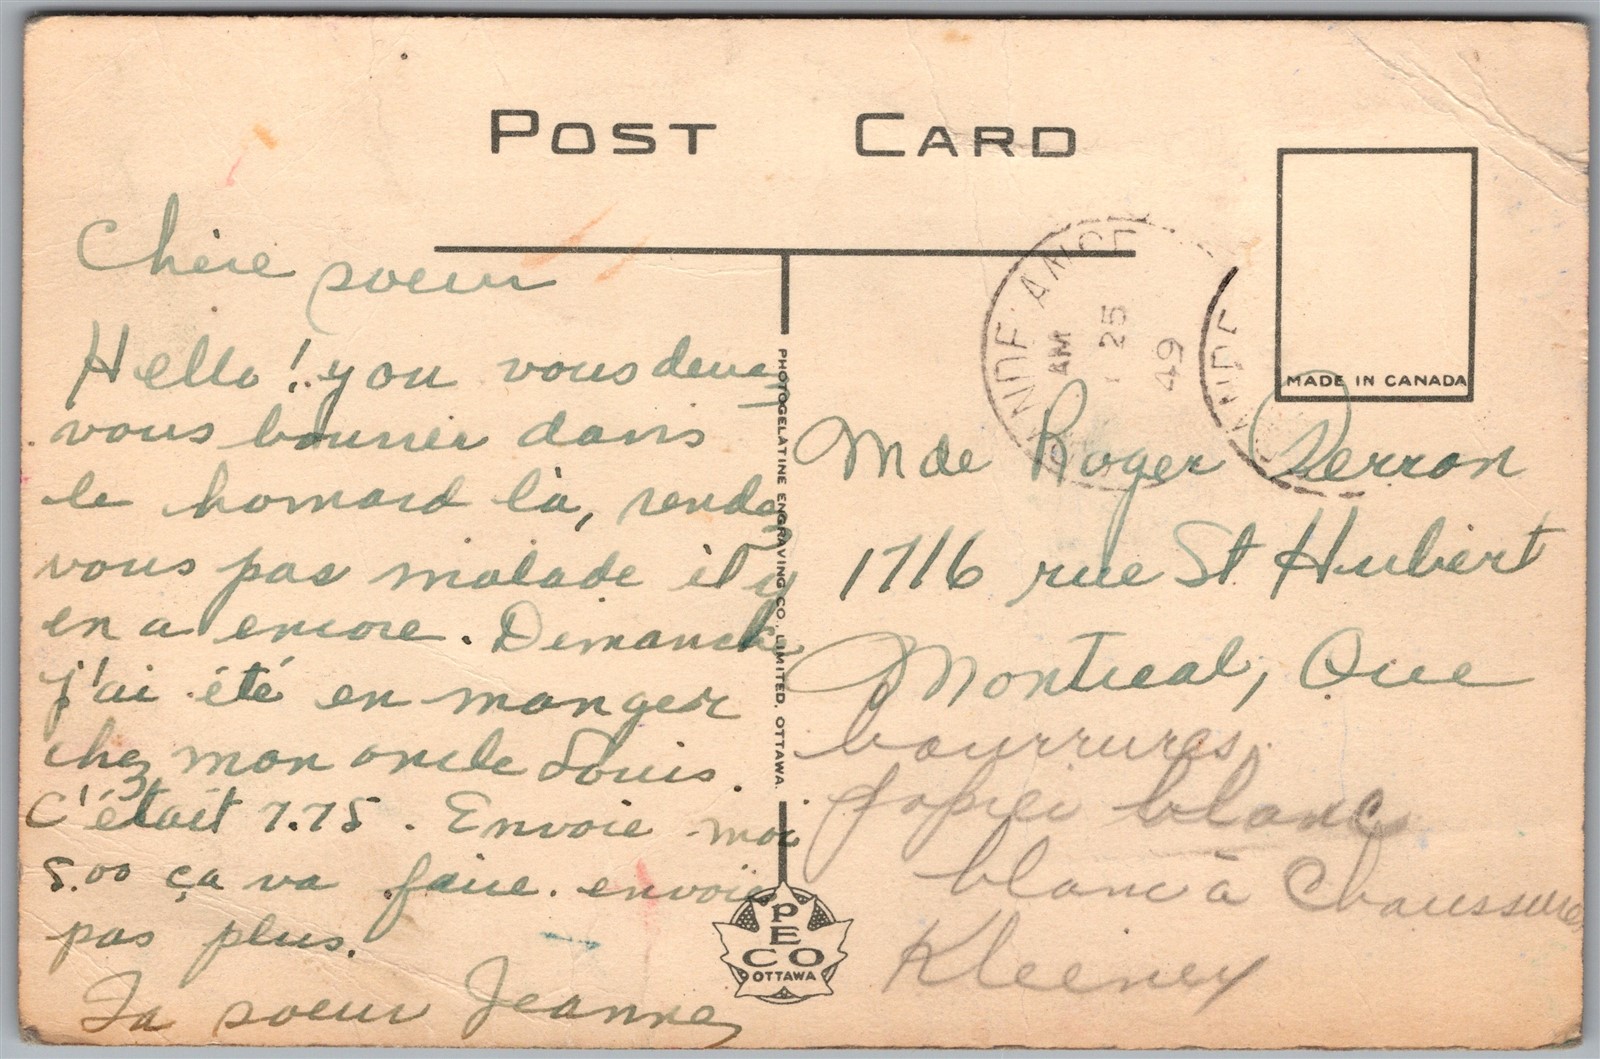 POST CARD
Chère soeur
Hello! you vous devez
vous bourrer dans
le homard là, rendez
vous pas malade il y
en a encore. Dimanche
j'ai été en manger
chez mon oncle Louis.
C'était 7.75. Envoie moi
5.00 ça va faire. envoie
pas plus.
Ta soeur Jeanne
PHOTOGELATINE ENGRAVING CO. LIMITED, OTTAWA.
PECO
OTTAWA
AM
25
49
MADE IN CANADA
Mde Roger Perron
1716 rue St Hubert
Montreal, Que
bourrures,
papier blanc
blanc à chaussures
Kleenex